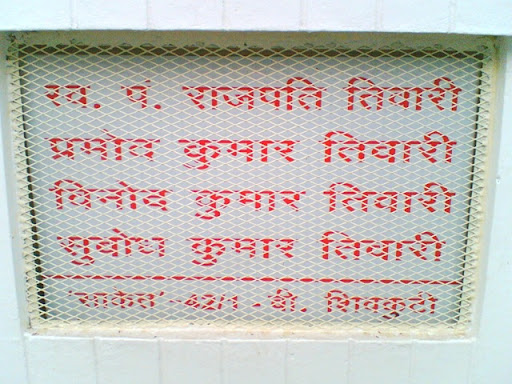 स्व. पं. राजपति तिवारी
प्रमोद कुमार तिवारी
विनोद कुमार तिवारी
सुबोध कुमार तिवारी
'साकेत' - - बी. शिवकुटी